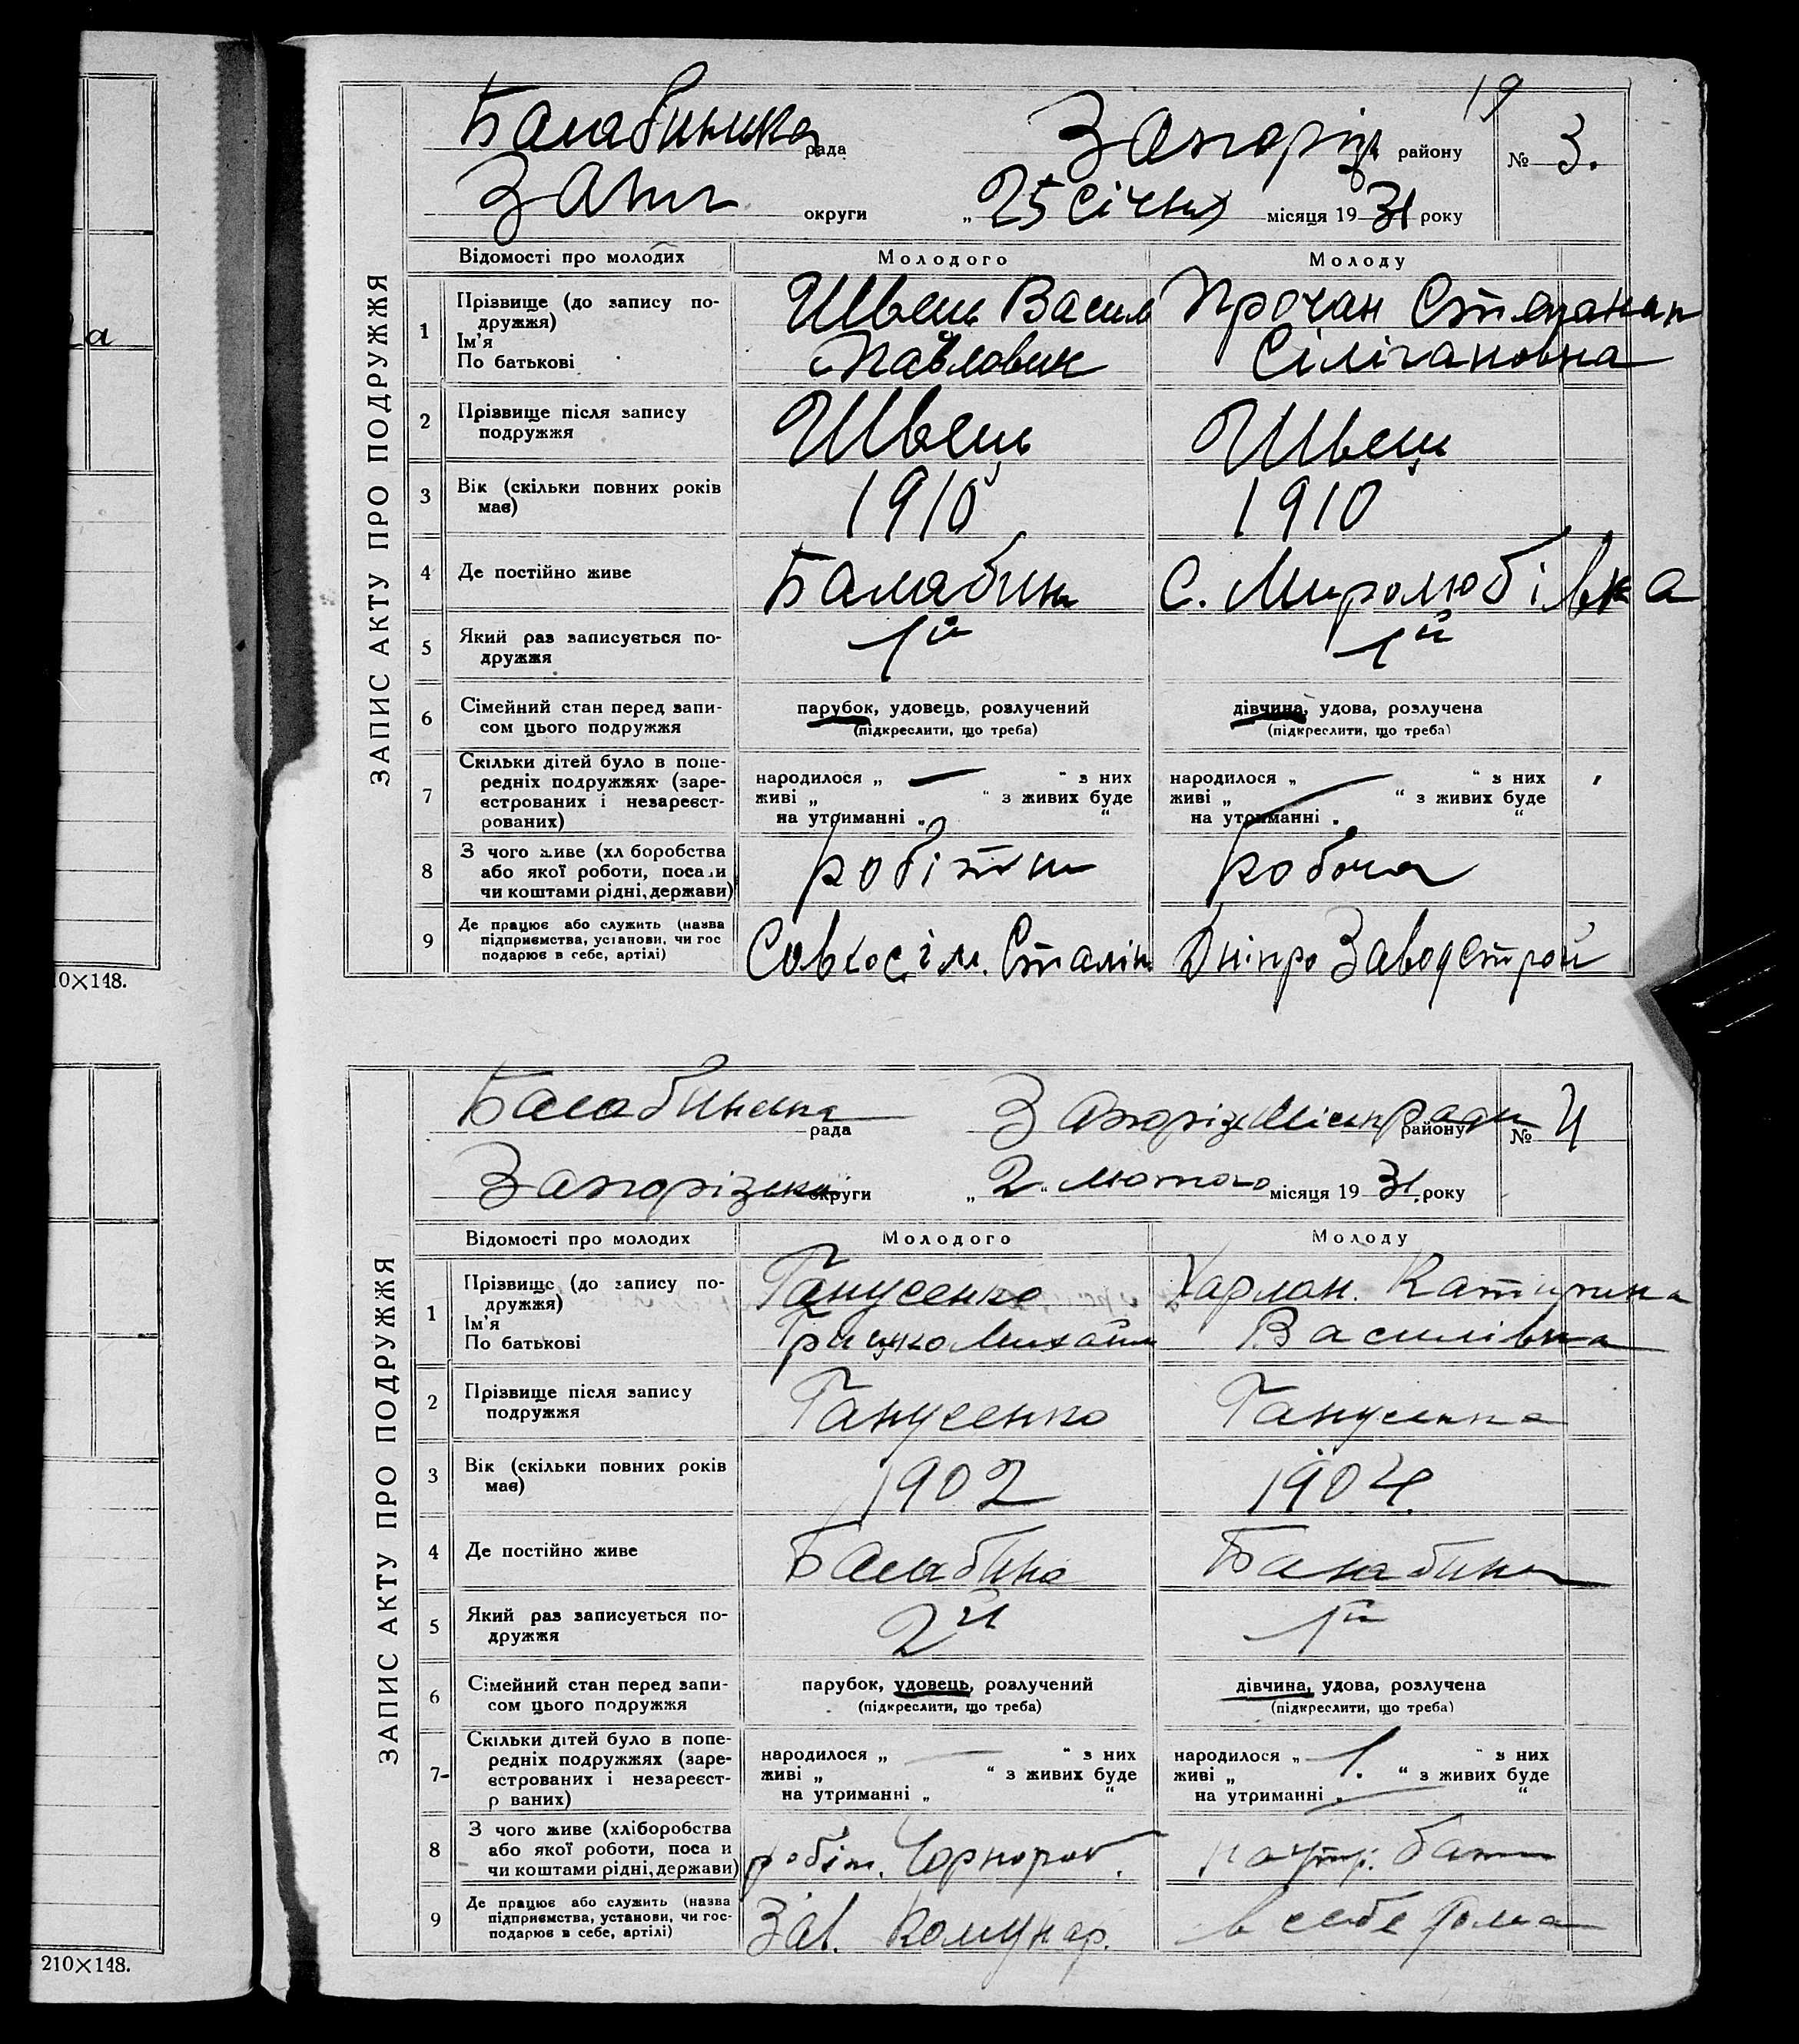 а
0×148.
210×148.
19
Балабинська рада Запоріз району № 3.
Запор округи „25 січня місяця 1931 року
ЗАПИС АКТУ ПРО ПОДРУЖЖЯ
Відомості про молодих Молодого Молоду
1 Прізвище (до запису по- Швець Васил Прочан Степанап
дружжя)
Ім'я
По батькові Павлович Сілігановна
2 Прізвище після запису Швець Швець
подружжя
3 Вік (скільки повних років 1910 1910
має)
4 Де постійно живе Балабин С. Миролюбівка
5 Який раз записується по- 1й 1й
дружжя
6 Сімейний стан перед запи- парубок, удовець, розлучений дівчина, удова, розлучена
сом цього подружжя (підкреслити, що треба) (підкреслити, що треба)
7 Скільки дітей було в попе-
редніх подружжях (заре- народилося „ — “ з них народилося „ — “ з них
єстрованих і незареєст- живі „ “ з живих буде живі „ “ з живих буде
рованих) на утриманні „ “ на утриманні „ “
8 З чого живе (хл боробства робітн робоча
або якої роботи, поса и
чи коштами рідні, держави)
9 Де працює або служить (назва Совхос ім. Сталін ДніпроЗаводстрой
підприємства, установи, чи гос
подарює в себе, артілі)
Балабинська рада Запорізьк Міськради району № 4
Запорізька округи „2“ лютого місяця 1931. року
ЗАПИС АКТУ ПРО ПОДРУЖЖЯ
Відомості про молодих Молодого Молоду
1 Прізвище (до запису по- Ганусенко Харлан. Катирина
дружжя)
Ім'я
По батькові Грицко Михайл Василівна
2 Прізвище після запису Ганусенко Ганусенко
подружжя
3 Вік (скільки повних років 1902 1904
має)
4 Де постійно живе Балабино Балабино
5 Який раз записується по- 2й 1й
дружжя
6 Сімейний стан перед запи- парубок, удовець, розлучений дівчина, удова, розлучена
сом цього подружжя (підкреслити, що треба) (підкреслити, що треба)
7 Скільки дітей було в попе-
редніх подружжях (заре- народилося „ — “ з них народилося „ 1. “ з них
єстрованих і незареєст- живі „ “ з живих буде живі „ “ з живих буде
р ваних) на утриманні „ “ на утриманні „ “
8 З чого живе (хліборобства робітн. Чорнороб. на утр. бать
або якої роботи, поса и
чи коштами рідні, держави)
9 Де працює або служить (назва Зав. Комунар. в себе дома
підприємства, установи, чи гос-
подарює в себе, артілі)